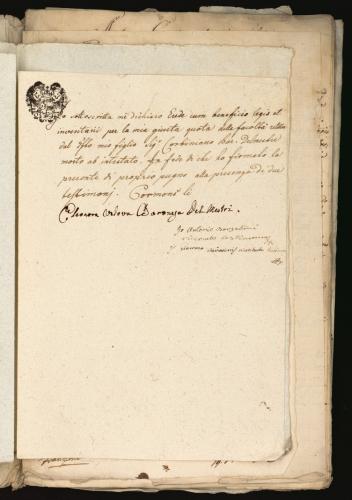 Io sottoscritta mi dichiaro Erede cum beneficio legis et
inventarii per la mia giusta quota della facoltà
del mio figlio Sig. Corbiniano Bar. Delmestri
morto ab intestato. In fede di che ho firmato la
presente di proprio pugno alla presenza di due
testimonj. Cormons li
Eleonora Vedova Baronessa Del Mestri.
Io Antonio